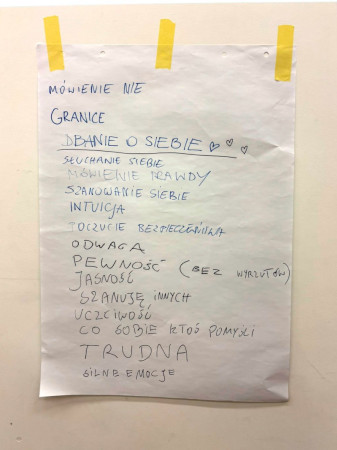 MÓWIENIE NIE
GRANICE
DBANIE O SIEBIE
SŁUCHANIE SIEBIE
MÓWIENIE PRAWDY
SZANOWANIE SIEBIE
INTUICJA
POCZUCIE BEZPIECZEŃSTWA
ODWAGA
PEWNOŚĆ (BEZ WYRZUTÓW)
JASNOŚĆ
SZANUJĘ INNYCH
UCZCIWOŚĆ
CO SOBIE KTOŚ POMYŚLI
TRUDNA
SILNE EMOCJE